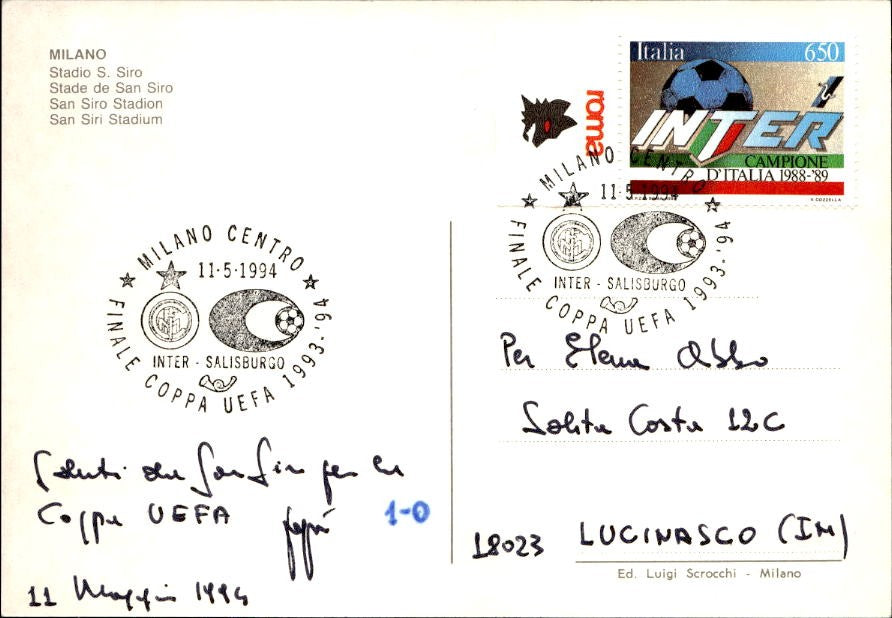 MILANO
Stadio S. Siro
Stade de San Siro
San Siro Stadion
San Siri Stadium
Italia 650
INTER
CAMPIONE
D'ITALIA 1988-'89
roma
MILANO CENTRO
11-5-1994
INTER - SALISBURGO
FINALE COPPA UEFA 1993-'94
MILANO CENTRO
11-5-1994
INTER - SALISBURGO
FINALE COPPA UEFA 1993-'94
Saluti da San Siro per la
Coppa UEFA 1-0
11 Maggio 1994
Per Elena Abbo
Salita Costa 12C
18023 LUCINASCO (IM)
Ed. Luigi Scrocchi - Milano